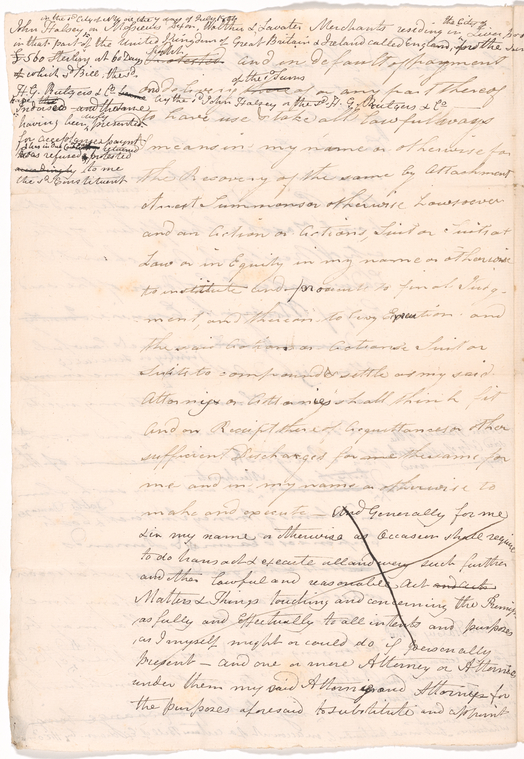 in the sd City
day of July 1794
John Halsey on Messieurs Dixon, Walther & Lavater Merchants residing in the City of
in that part of the United Kingdom of Great Britain & Ireland called England, for the Sum
£560 Sterling at 60 days and on default of payment
of which sd Bill, the sd and delivery of the Sums of or any part thereof
H. G. Rutgers & Co by the sd John Halsey or the sd H. G. Rutgers & Co
Indorsed and the same
having been duly presented to have use & take all lawful ways
for acceptance & payment
was refused & protested & means in my name or otherwise for
to me
the sd Constituent the Recovery of the same by Attachment
Arrest Summons or otherwise howsoever
and an Action or Actions, Suit or Suits at
Law or in Equity in my name or otherwise
to institute and prosecute to final Judg-
ment, and thereon to levy Execution and
the said Action or Actions Suit or
Suits to compound or settle as my said
Attorney or Attornies shall think fit
And on Receipt thereof Acquittances or other
sufficient Discharges for me the same for
me and in my name or otherwise to
make and execute – And Generally for me
& in my name or otherwise as Occasion shall require
to do transact & execute all and every such further
and other lawful and reasonable Act and acts
Matters & Things touching and concerning the Premises
as fully and effectually to all intents and purposes
as I myself might or could do if personally
Present – and one or more Attorney or Attornies
under them my said Attorney and Attornies for
the purposes aforesaid to substitute and appoint